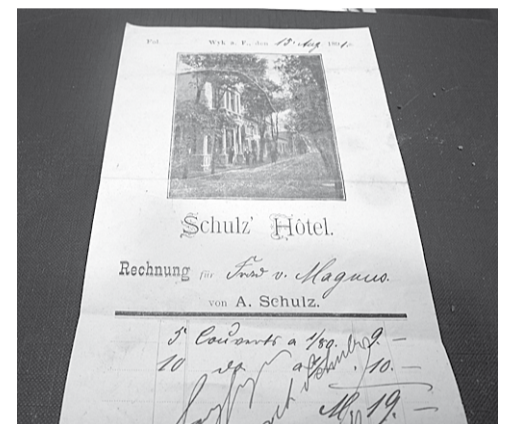 Fol. Wyk a. F., den 15 Aug. 190
Schulz' Hôtel.
Rechnung für v. Magnus.
von A. Schulz.
5 Couverts a 1/80. 9.–
10 do a 10.–
M 19.–